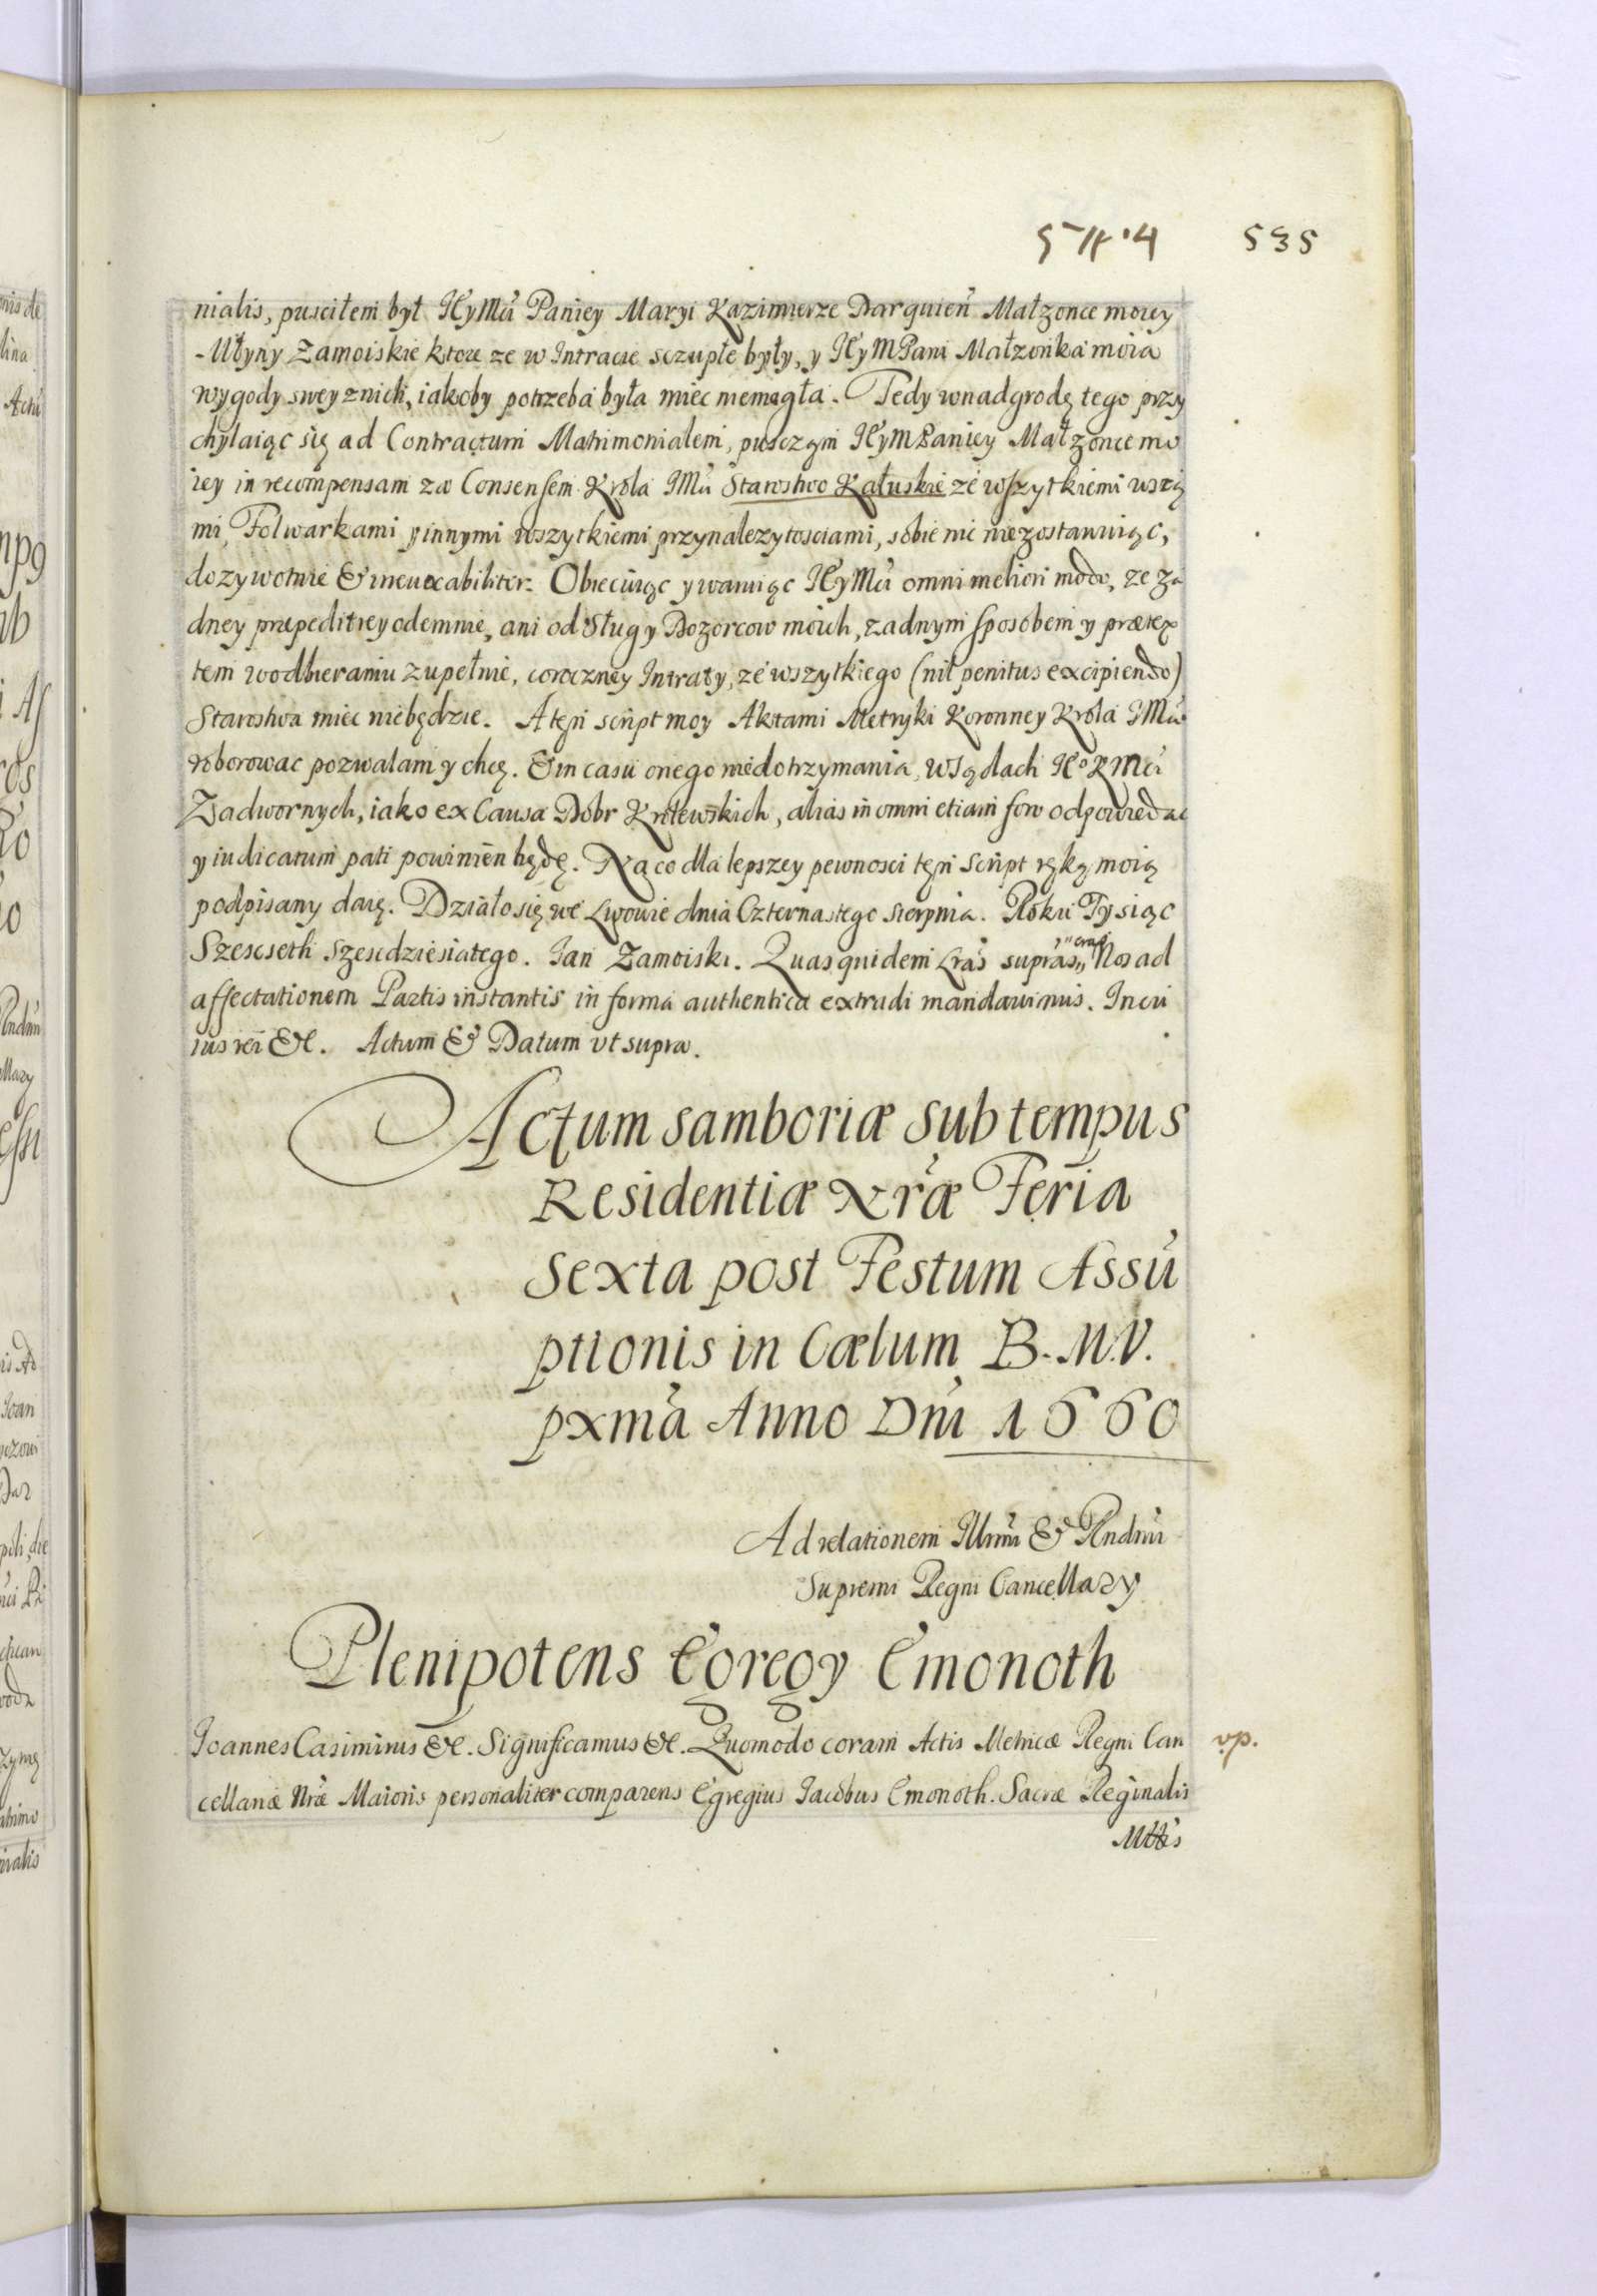 535
nialis, pusciłem był JeyMci Paniey Maryi Kazimierze Darquien Małzonce moiey
Młyny Zamoiskie ktore ze w Intracie sczupłe były, y JeyMPani Małzonka moia
wygody swey znich, iakoby potrzeba była miec niemogła. Tedy wnadgrodę tego przy
chylaiąc się ad Contractum Matrimonialem, pusczam JeyMPaniey Małzonce mo
iey in recompensam za Consensem Krola JMci Starostwo Kałuskie ze wszytkiemi wsią
mi, Folwarkami y innymi wszytkiemi przynalezytosciami, sobie nic niezostawuiąc,
dozywotnie & irreuocabiliter. Obiecuiąc y waruiąc JeyMci omni meliori modo, ze za
dney przepeditiey odemnie, ani od Sług y Dozorcow moich, zadnym sposobem y prætex
tem wodbieraniu zupełnie, coroczney Intraty, ze wszytkiego (nil penitus excipiendo)
Starostwa miec niebędzie. A ten script moy Aktami Metryki Koronney Krola JMci
roborowac pozwalam y chcę. & in casu onego niedotrzymania, wsądach JeoKMci
Zadwornych, iako ex Causa Dobr Krolewskich, alias in omni etiam foro odpowiedac
y iudicatum pati powinien będę. Na co dla lepszey pewnosci ten script ręką moią
podpisany daię. Działo się we Lwowie dnia Czternastego Sierpnia. Roku Tysiąc
Szescseth Szescdziesiatego. Jan Zamoiski. Quas quidem Lras supras Nos ad
affectationem Partis instantis in forma authentica extradi mandauimus. In cu
ius rei &c. Actum & Datum vt supra.
Actum Samboriæ Sub tempus
Residentiæ Nræ Feria
Sexta post Festum Assu
ptionis in Cælum B. M. V.
pxma Anno Dni 1660
Ad relationem Illmi & Rndmi
Supremi Regni Cancellary
Plenipotens Egregy Emonoth
Joannes Casimirus &c. Significamus &c. Quomodo coram Actis Metricæ Regni Can
cellariæ Nræ Maioris personaliter comparens Egregius Jacobus Emonoth. Sacræ Reginalis
Mttis